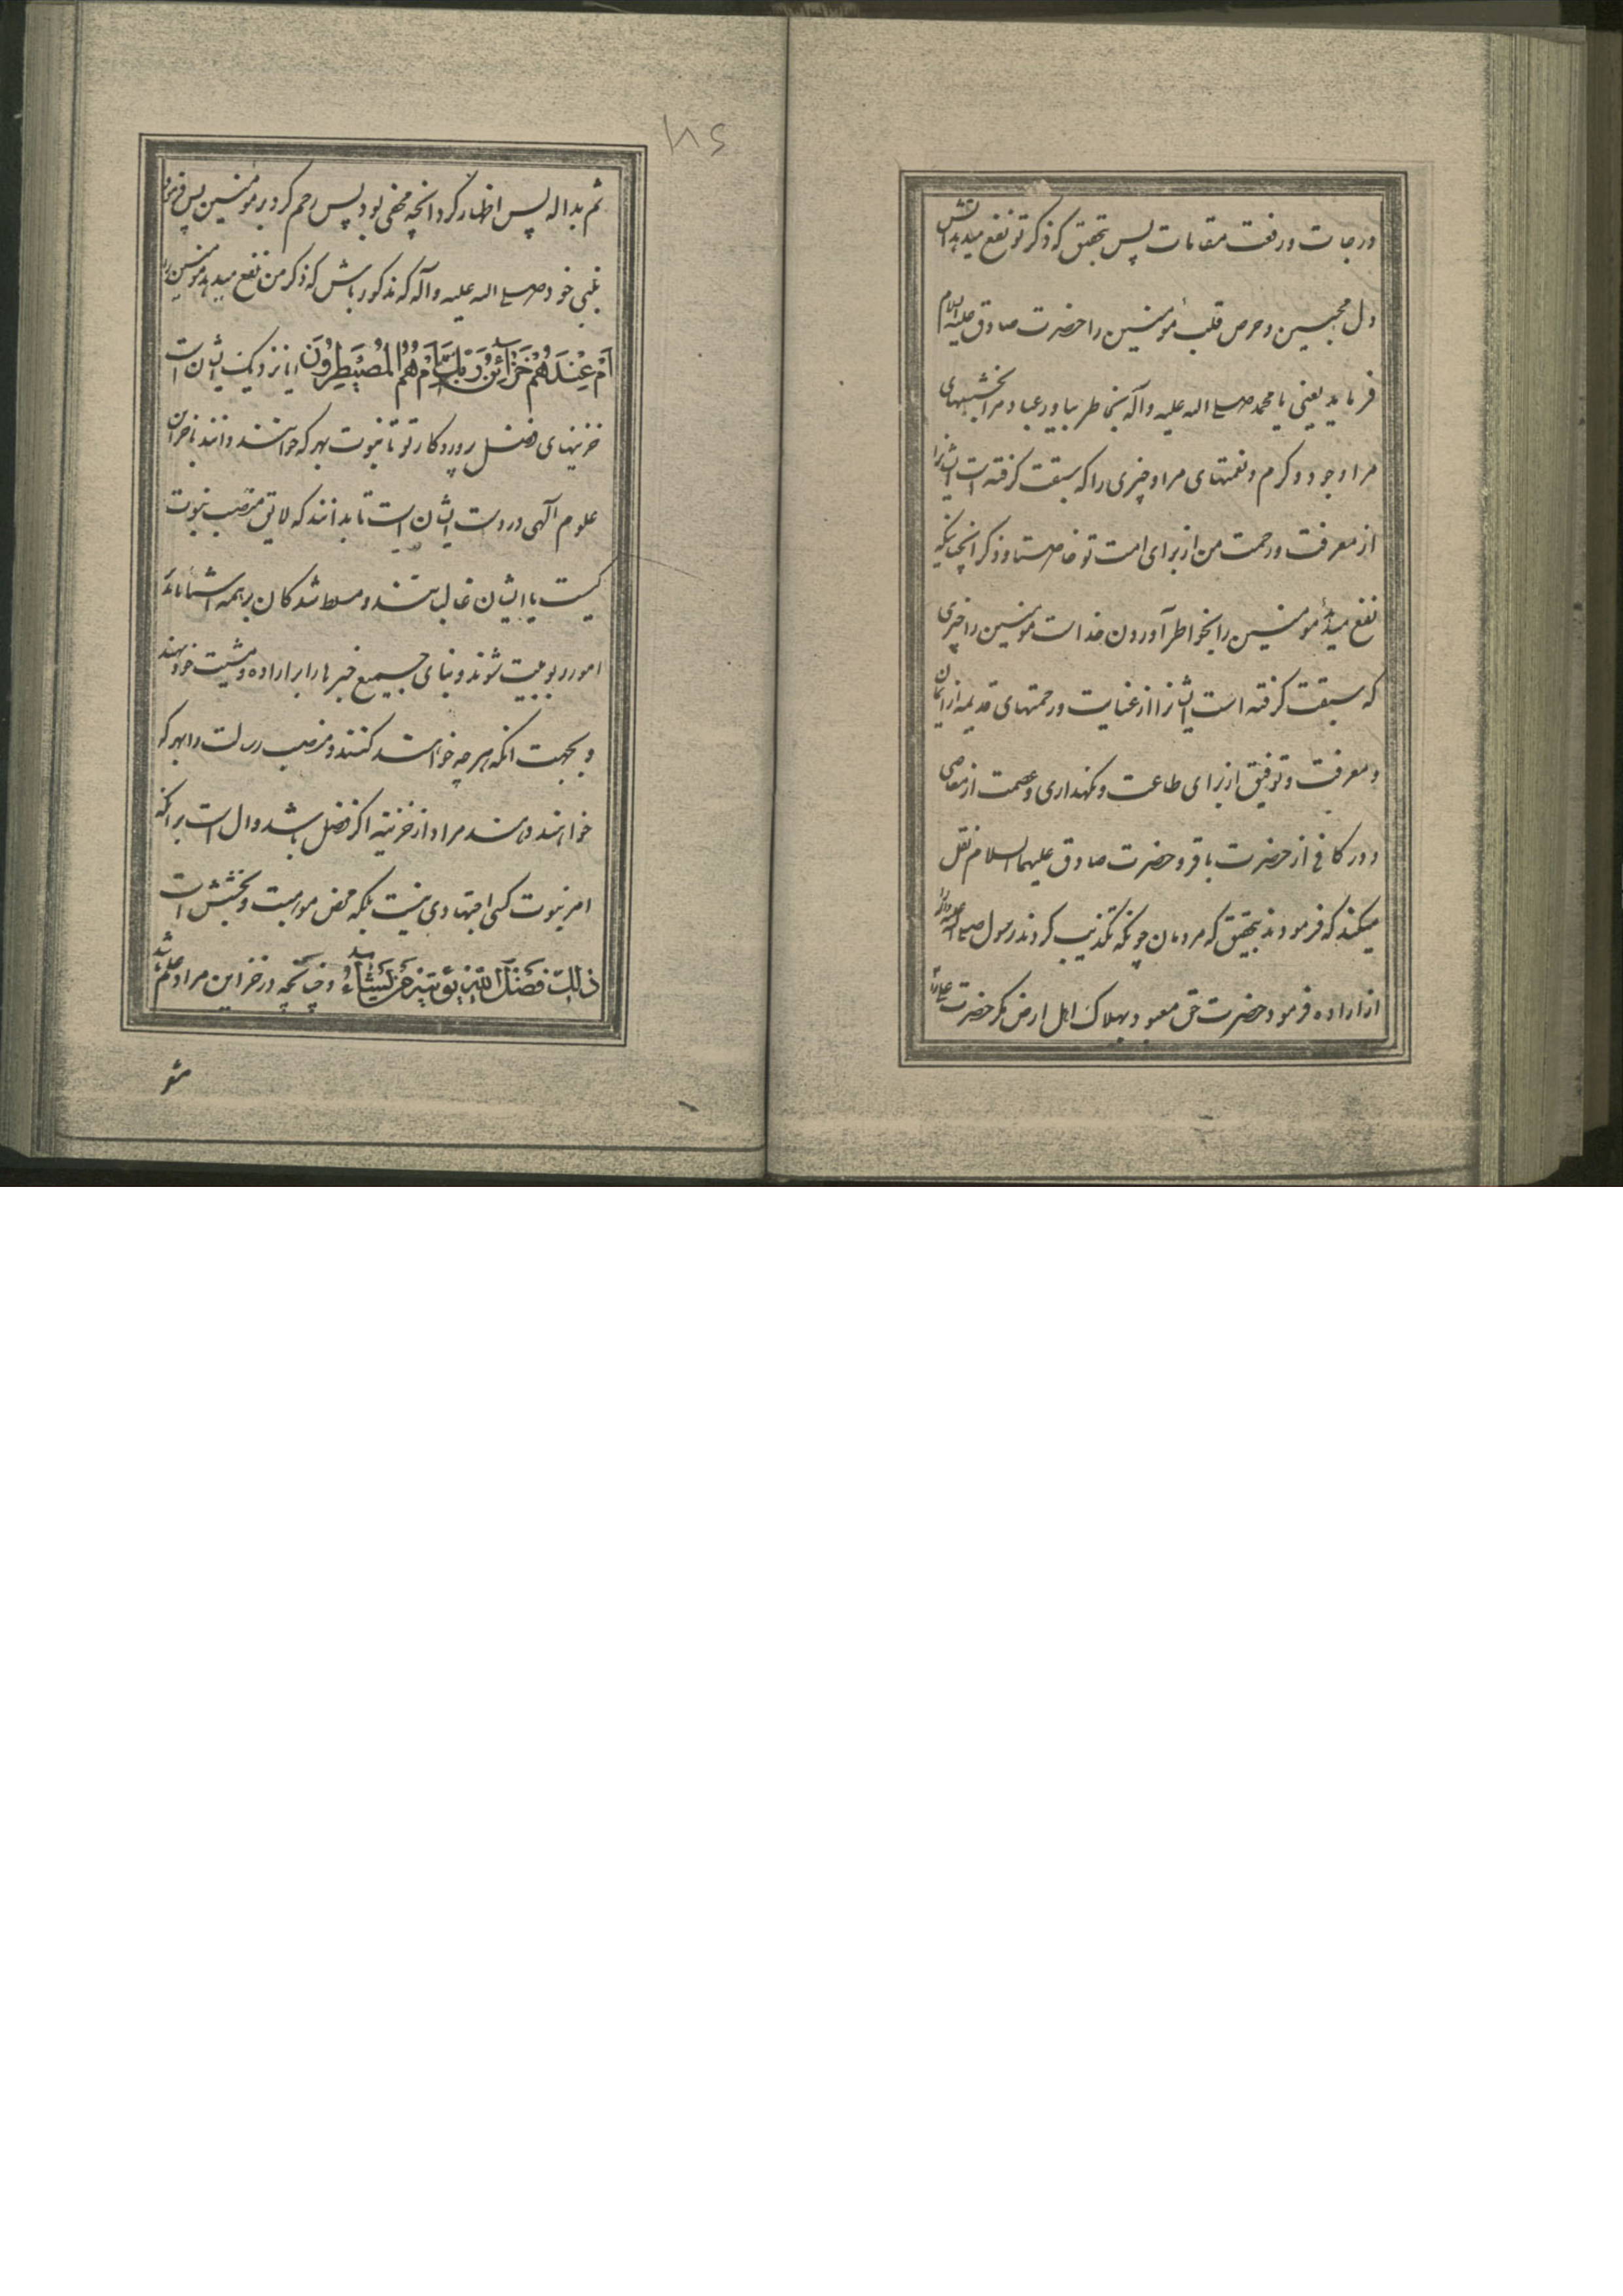 درجات و رفعت مقامات پس بتحقیق که ذکر تو نفع میدهد
دل محبین و حرص قلب مؤمنین را حضرت صادق علیه السلام
فرماید یعنی یا محمد صلی الله علیه و آله بخاطر بیاور عباد مرا بخششهای
مرا و جود و کرم و نعمتهای مرا و چیزی را که سبقت گرفته است ایشانرا
از معرفت و رحمت من از برای امت تو خاصة و ذکر آنچنانیکه
نفع میدهد مؤمنین را بخواطر آوردن خداست مؤمنین را چیزی
که سبقت گرفته است ایشانرا از عنایت و رحمتهای قدیمه از ایمان
و معرفت و توفیق از برای طاعت و نگهداری و عصمت از معاصی
و در کافی از حضرت باقر و حضرت صادق علیهما السلام نقل
میکند که فرمودند بتحقیق که مردمان چونکه تکذیب کردند رسول صلی الله علیه وآله را
از اراده فرمود حضرت حق معبود بهلاک اهل ارض مگر حضرت علی را
۱۸۶
ثم بدا له پس اظهار کرد آنچه مخفی بود پس رحم کرد بر مؤمنین پس فرمود
بنبی خود صلی الله علیه وآله که مذکور باش که ذکر من نفع میدهد مؤمنین را
اَمْ عِنْدَهُمْ خَزَائِنُ رَبِّكَ اَمْ هُمُ الْمُصَيْطِرُونَ ایا نزدیک ایشان است
خزینهای فضل پروردگار تو تا نبوت بهر که خواهند دهند یا خزاین
علوم آلهی در دست ایشان است تا بدانند که لایق منصب نبوت
کیست یا ایشان غالب هستند و مسلط شدگان بر همه اشیا تا مدبر
امور ربوبیت شوند و بنای جمیع خبرها را بر اراده و مشیت خود نهند
و بجهت آنکه هرچه خواهند کنند و منصب رسالت را بهر که
خواهند دهند مراد از خزینه اگر فضل باشد دال است بر آنکه
امر نبوت کسی اجتهادی نیست بلکه محض موهبت و بخشش است
ذٰلِكَ فَضْلُ اللّٰهِ يُؤْتِيهِ مَنْ يَشَاءُ و چنانچه در خزاین مراد علم باشد